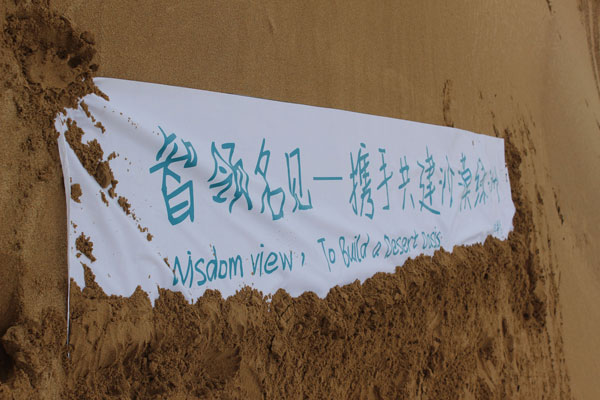 智领名见—携手共建沙漠绿洲
Wisdom view, To Build a Desert Oasis